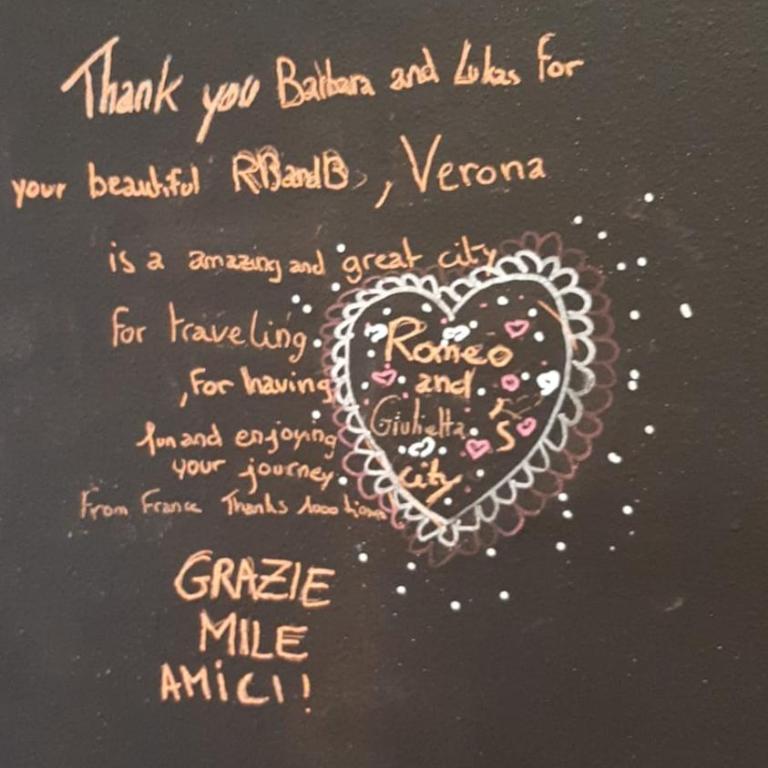 Thank you Barbara and Lukas for
your beautiful RBandB, Verona
is a amazing and great city
for traveling
, for having
fun and enjoying
your journey.
From France Thanks 1000 times
Romeo
and
Giulietta's
city
GRAZIE
MILE
AMiCI!